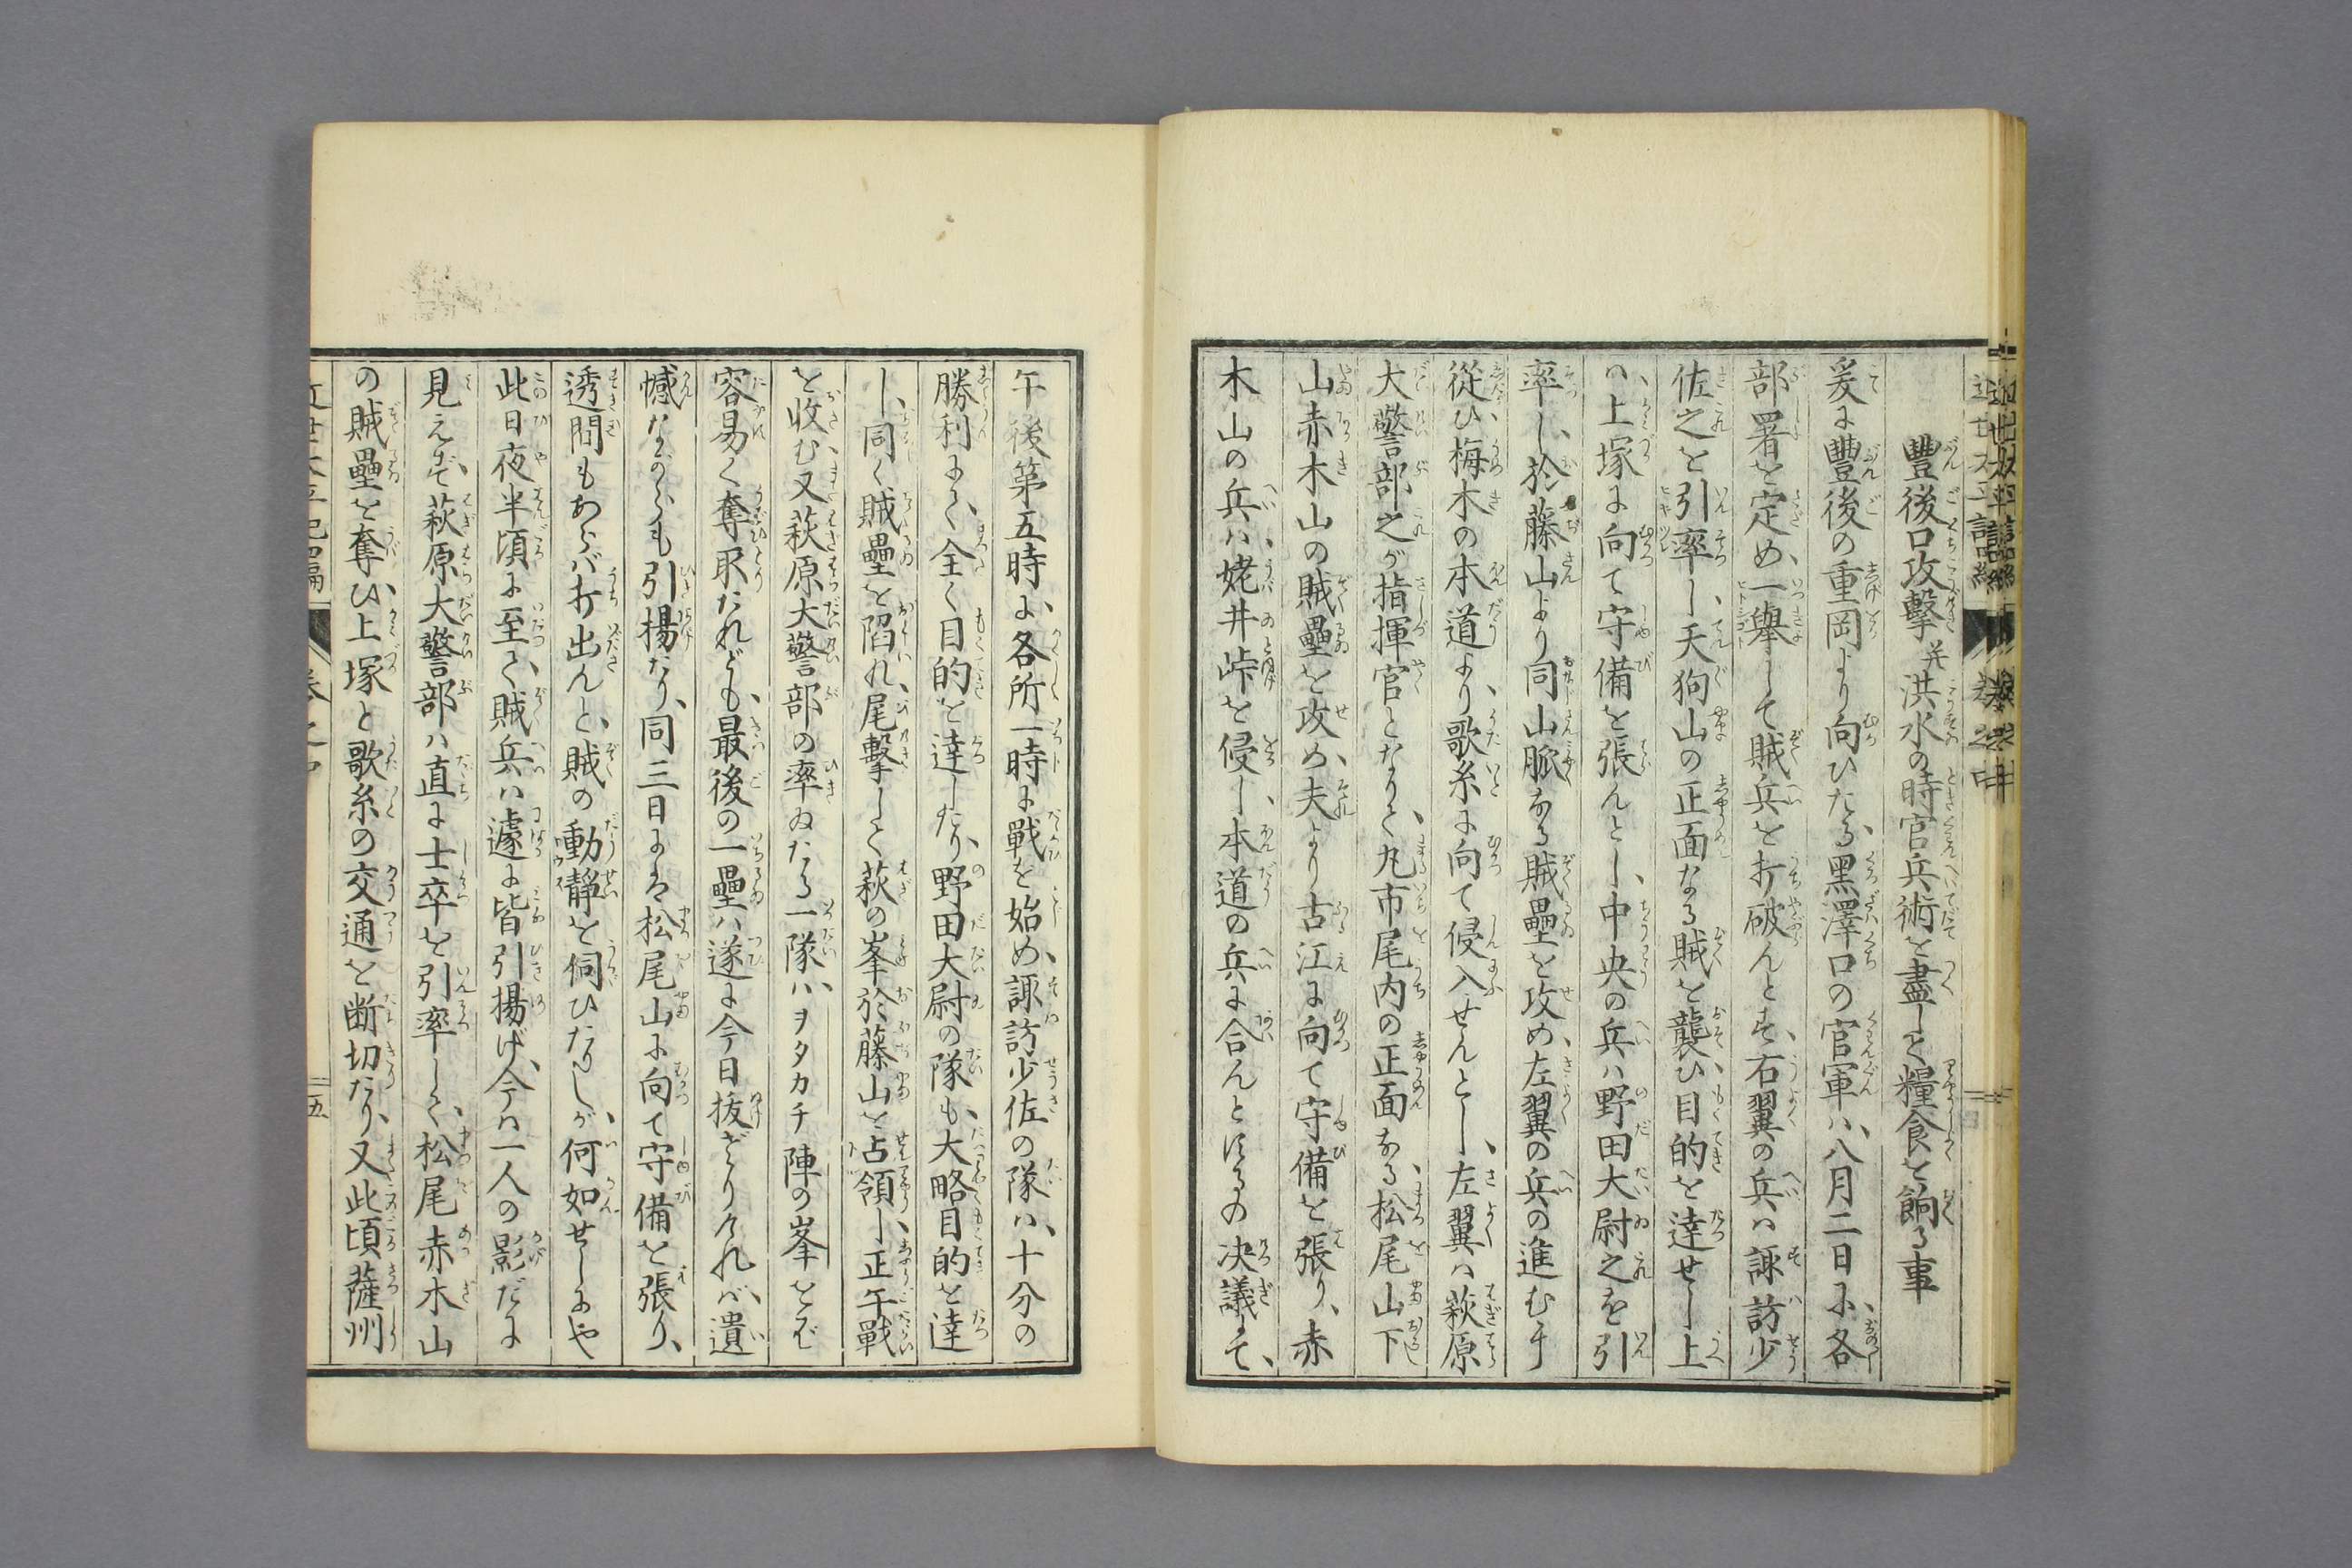 豐後口攻擊并洪水の時官兵術を盡して糧食を餉る事
爰に豐後の重岡より向ひたる、黑澤口の官軍ハ、八月二日に、各
部署を定め、一擧して賊兵を打破んとす、右翼の兵ハ諏訪少
佐之を引率し、天狗山の正面なる賊を襲ひ、目的を達せし上
ハ、上塚に向て守備を張んとし、中央の兵ハ野田大尉之を引
率し、於藤山より同山脈なる賊壘を攻め、左翼の兵の進むヿ
從ひ、梅木の本道より、歌糸に向て侵入せんとし、左翼ハ萩原
大警部之が指揮官となりて、丸市尾内の正面なる、松尾山下
山赤木山の賊壘を攻め、夫より古江に向て守備を張り、赤
木山の兵ハ、姥井峠を侵し、本道の兵に合んとするの决議にて、
午後第五時に、各所一時に戰を始め、諏訪少佐の隊ハ、十分の
勝利にて、全く目的を達したり、野田大尉の隊も、大略目的を達
し、同く賊壘を陷れ、尾擊して萩の峯於藤山を占領し、正午戰
を收む、又萩原大警部の率ゐたる一隊ハ、ヲタカチ陣の峯をバ
容易く奪取たれども、最後の一壘ハ遂に今日拔ざりけれバ、遺
憾ながらも引揚たり、同三日にハ松尾山に向て守備を張り、
透間もあらバ打出んと、賊の動靜を伺ひたりしが、何如せしにや
此日夜半頃に至て、賊兵ハ遽に皆引揚げ、今ハ一人の影だに
見えねバ、萩原大警部ハ直に士卒を引率して、松尾赤木山
の賊壘を奪ひ、上塚と歌糸の交通を断切たり、又此頃薩州
卷之中
五